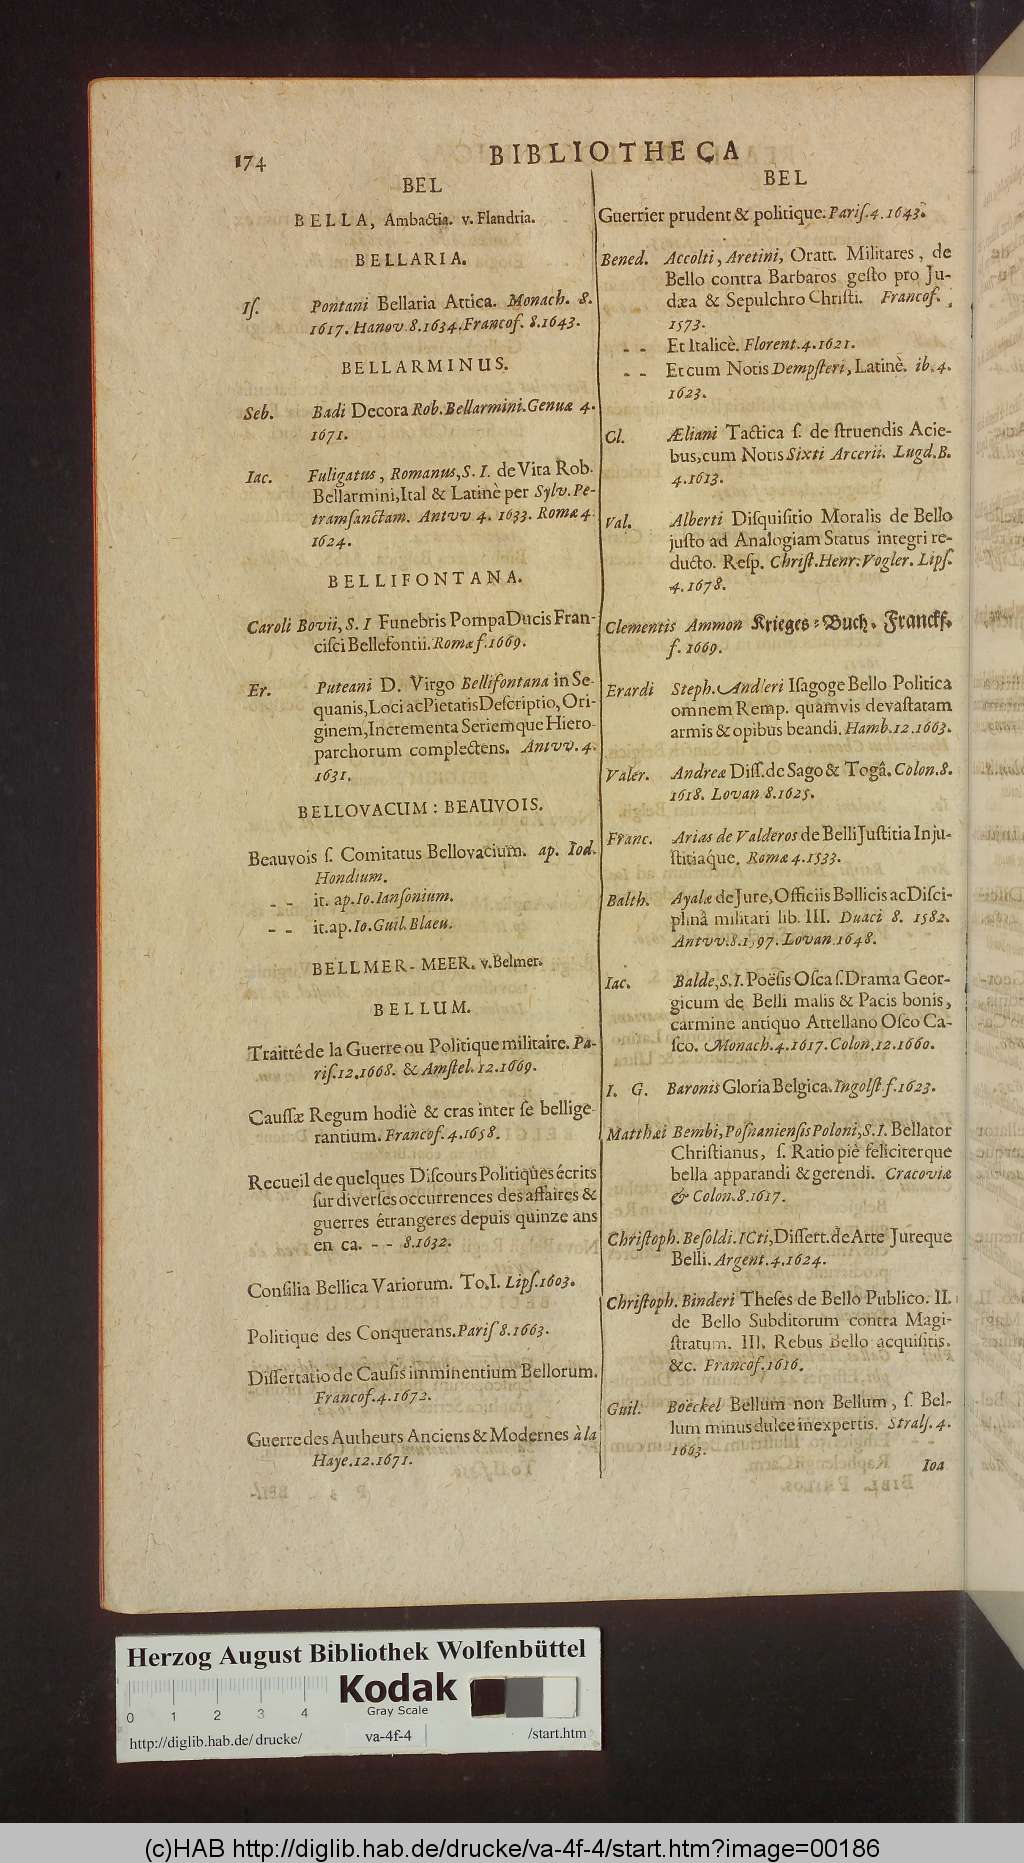 174
BIBLIOTHECA
BEL
BELLA, Ambactia. v. Flandria.
BELLARIA.
Iſ. Pontani Bellaria Attica. Monach. 8.
1617. Hanov. 8. 1634. Francof. 8. 1643.
BELLARMINUS.
Seb. Badi Decora Rob. Bellarmini. Genuæ 4.
1671.
Iac. Fuligatus, Romanus, S. I. de Vita Rob.
Bellarmini, Ital & Latinè per Sylv. Pe-
tramſanctam. Antvv 4. 1633. Romæ 4
1624.
BELLIFONTANA.
Caroli Bovii, S. I Funebris Pompa Ducis Fran-
ciſci Bellefontii. Romæ f. 1669.
Er. Puteani D. Virgo Bellifontana in Se-
quanis, Loci ac Pietatis Deſcriptio, Ori-
ginem, Incrementa Seriemque Hiero-
parchorum complectens. Antvv. 4.
1631.
BELLOVACUM: BEAUVOIS.
Beauvois ſ. Comitatus Bellovacium. ap. Iod.
Hondium.
- - it. ap. Io. Ianſonium.
- - it. ap. Io. Guil. Blaeu.
BELLMER-MEER. v. Belmer.
BELLUM.
Traitté de la Guerre ou Politique militaire. Pa-
riſ. 12. 1668. & Amſtel. 12. 1669.
Cauſſæ Regum hodiè & cras inter ſe bellige-
rantium. Francof. 4. 1658.
Recueil de quelques Diſcours Politiques écrits
ſur diverſes occurrences des affaires &
guerres étrangeres depuis quinze ans
en ca. - - 8. 1632.
Conſilia Bellica Variorum. To. I. Lipſ. 1603.
Politique des Conquerans. Pariſ 8. 1663.
Diſſertatio de Cauſis imminentium Bellorum.
Francof. 4. 1672.
Guerre des Autheurs Anciens & Modernes à la
Haye. 12. 1671.
BEL
Guerrier prudent & politique. Pariſ. 4. 1643.
Bened. Accolti, Aretini, Oratt. Militares, de
Bello contra Barbaros geſto pro Ju-
dæa & Sepulchro Chriſti. Francof.
1573.
- - Et Italicè. Florent. 4. 1621.
- - Et cum Notis Dempſteri, Latinè. ib. 4.
1623.
Cl. Æliani Tactica ſ. de ſtruendis Acie-
bus, cum Notis Sixti Arcerii. Lugd. B.
4. 1613.
Val. Alberti Diſquiſitio Moralis de Bello
juſto ad Analogiam Status integri re-
ducto. Reſp. Chriſt. Henr. Vogler. Lipſ.
4. 1678.
Clementis Ammon Krieges-Buch. Franckf.
f. 1669.
Erardi Steph. Andreri Iſagoge Bello Politica
omnem Remp. quamvis devaſtatam
armis & opibus beandi. Hamb. 12. 1663.
Valer. Andreæ Diſſ. de Sago & Togâ. Colon. 8.
1618. Lovan 8. 1625.
Franc. Arias de Valderos de Belli Juſtitia Inju-
ſtitiaque. Romæ 4. 1533.
Balth. Ayalæ de Jure, Officiis Bellicis ac Diſci-
plinâ militari lib. III. Duaci 8. 1582.
Antvv. 8. 1597. Lovan. 1648.
Iac. Balde, S. I. Poëſis Oſca ſ. Drama Geor-
gicum de Belli malis & Pacis bonis,
carmine antiquo Attellano Oſco Ca-
ſco. Monach. 4. 1617. Colon. 12. 1660.
I. G. Baronis Gloria Belgica. Ingolſt f. 1623.
Matthæi Bembi, Poſnanienſis Poloni, S. I. Bellator
Chriſtianus, ſ. Ratio piè feliciterque
bella apparandi & gerendi. Cracoviæ
& Colon. 8. 1617.
Chriſtoph. Beſoldi. ICti, Diſſert. de Arte Jureque
Belli. Argent. 4. 1624.
Chriſtoph. Binderi Theſes de Bello Publico. II.
de Bello Subditorum contra Magi-
ſtratum. III. Rebus Bello acquiſitis.
&c. Francof. 1616.
Guil. Boëckel Bellum non Bellum, ſ. Bel-
lum minus dulce inexpertis. Stralſ. 4.
1663.
Ioa
Herzog August Bibliothek Wolfenbüttel
Kodak
Gray Scale
0 1 2 3 4
http://diglib.hab.de/drucke/ va-4f-4 /start.htm
(c)HAB http://diglib.hab.de/drucke/va-4f-4/start.htm?image=00186